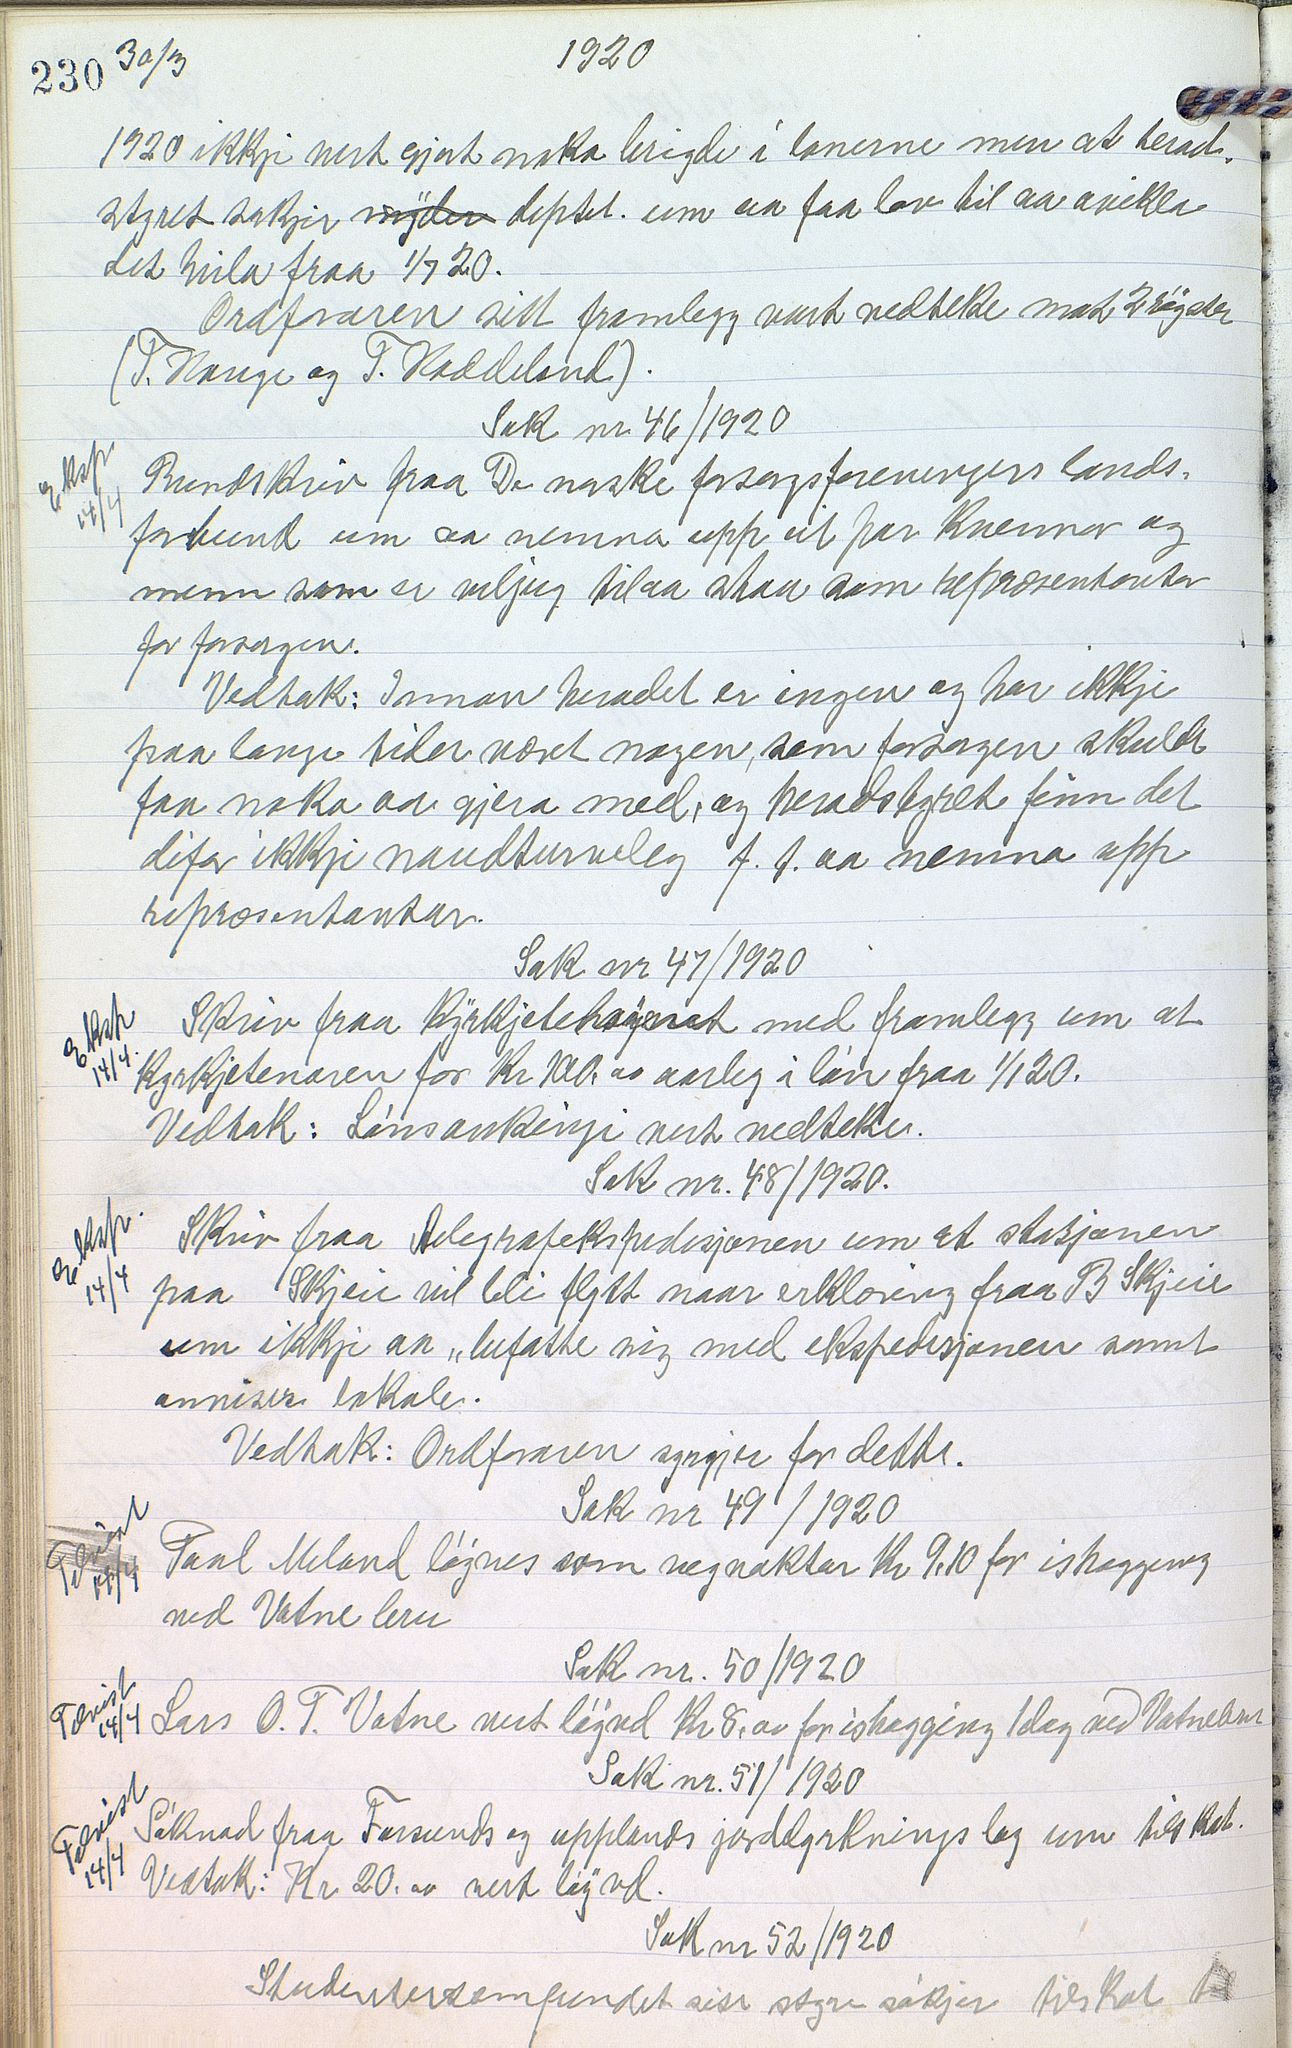 230 30/3 1920
1920 ikkji vert gjort noka brigde i lønerne men at herad-
styret søkjer deptet. um aa faa lov til aa avikla
det heila fraa 1/7 20.
Ordføraren sitt framlegg vart vedteke mot 2 røyster
(T. Hauge og T. Haddeland).
Sak nr. 46/1920
Eksp. 14/4
Rundskriv fraa De norske forsorgsforeningers lands-
forbund um aa nemna upp eit par kvennor og
menn som er viljug til aa staa som repræsentantar
for forsorgen.
Vedtak: Innan heradet er ingen og har ikkje
paa lange tider været nogen, som forsorgen skulde
faa noko aa gjera med, og heradstyret finn det
difor ikkji naudturveleg f. t. aa nemna upp
repræsentantar.
Sak nr 47/1920
Eksp. 14/4.
Skriv fraa kyrkjetilsynet med framlegg um at
Kyrkjetenaren for Kr. 100.00 aarleg i løn fraa 1/1 20.
Vedtak: Lønsaukingi vert vedteke.
Sak nr. 48/1920.
Eksp. 14/4
Skriv fraa telegrafekspedisjonen um at stasjonen
paa Skjeie vil bli flytt naar erklæring fraa B Skjeie
um ikkji aa „befatte sig med ekspedisjonen samt
anviser lokale.
Vedtak: Ordføraren syrgjer for dette.
Sak nr 49 / 1920
Tilvist 14/4
Paal Meland løgnes som vegvaktar Kr 9.10 for ishogging
ved Vatne bru
Sak nr. 50/1920
Tilvist 14/4
Lars O. T. Vatne vert løyvd Kr 8.00 for ishogging 1 dag ved Vatnebru
Sak nr. 51/1920
Tilvist 14/4
Søknad fraa Farsunds og upplands jorddyrknings lag um tilskot.
Vedtak: Kr. 20.00 vert løyvd.
Sak nr 52/1920
Studentersamfundet sise styre søkjer tilskot til